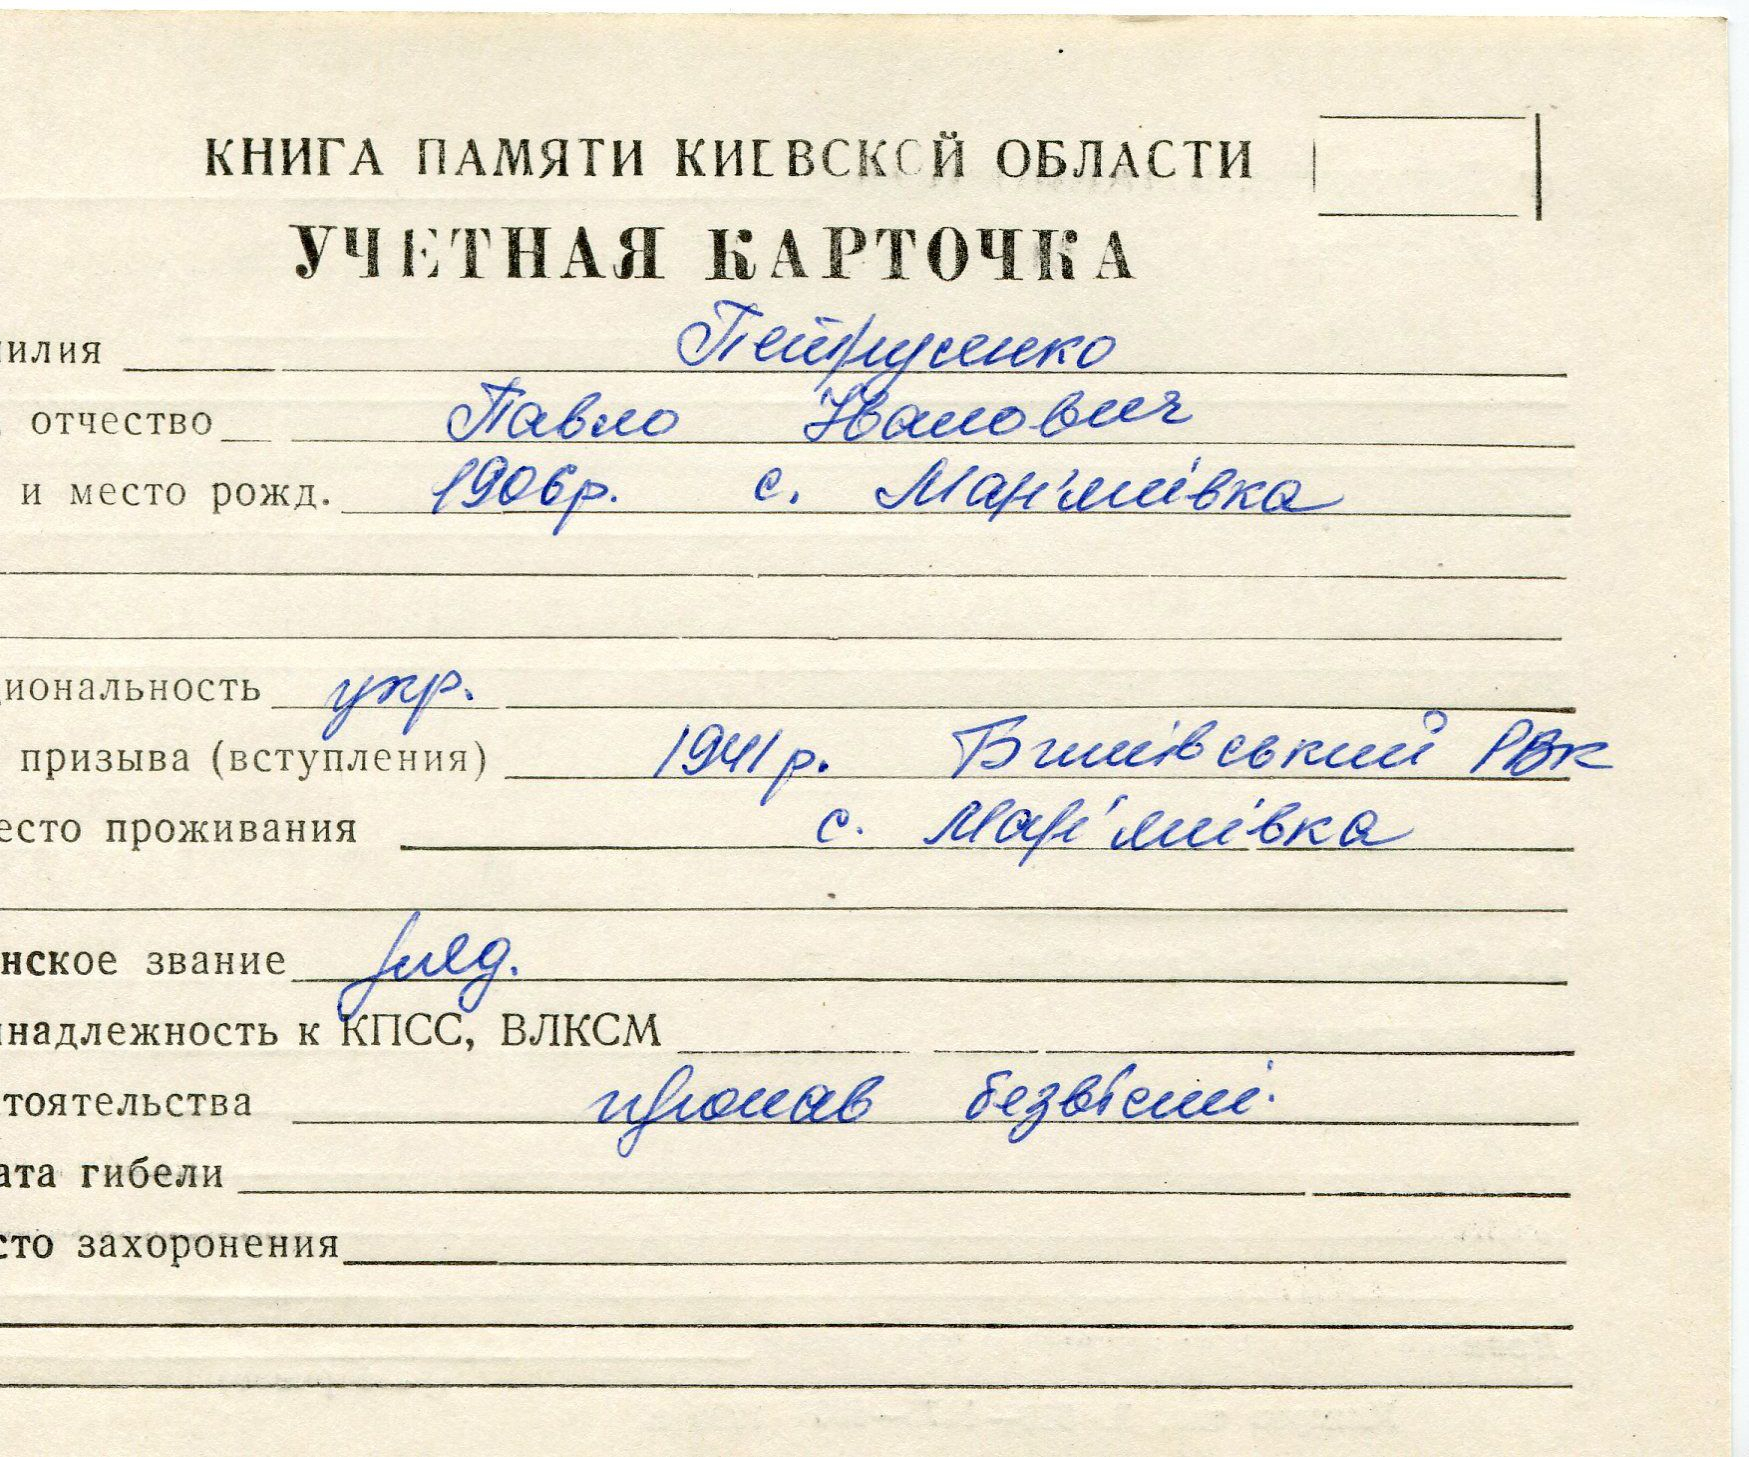 КНИГА ПАМЯТИ КИЕВСКОЙ ОБЛАСТИ
УЧЕТНАЯ КАРТОЧКА
илия Петрусенко
отчество Павло Іванович
и место рожд. 1906р. с. Мар'янівка
циональность укр.
призыва (вступления) 1941 р. РВК
есто проживания с. Мар'янівка
нское звание ряд.
надлежность к КПСС, ВЛКСМ
тоятельства пропав безвісті.
ата гибели
сто захоронения